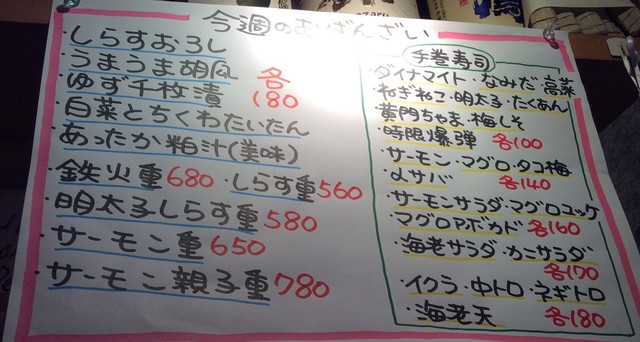 今週のおばんざい
・しらすおろし
・うまうま胡瓜
・ゆず千枚漬
各180
・白菜とちくわたいたん
・あったか粕汁(美味)
・鉄火重680・しらす重560
・明太子しらす重580
・サーモン重650
・サーモン親子重780
手巻寿司
ダイナマイト・なみだ・高菜
・ねぎねこ・明太子・たくあん
黄門ちゃま・梅しそ
・時限爆弾 各100
・サーモン・マグロ・タコ梅
・〆サバ 各140
・サーモンサラダ・マグロユッケ
・マグロアボカド 各160
・海老サラダ・カニサラダ
各170
・イクラ・中トロ・ネギトロ
・海老天 各180